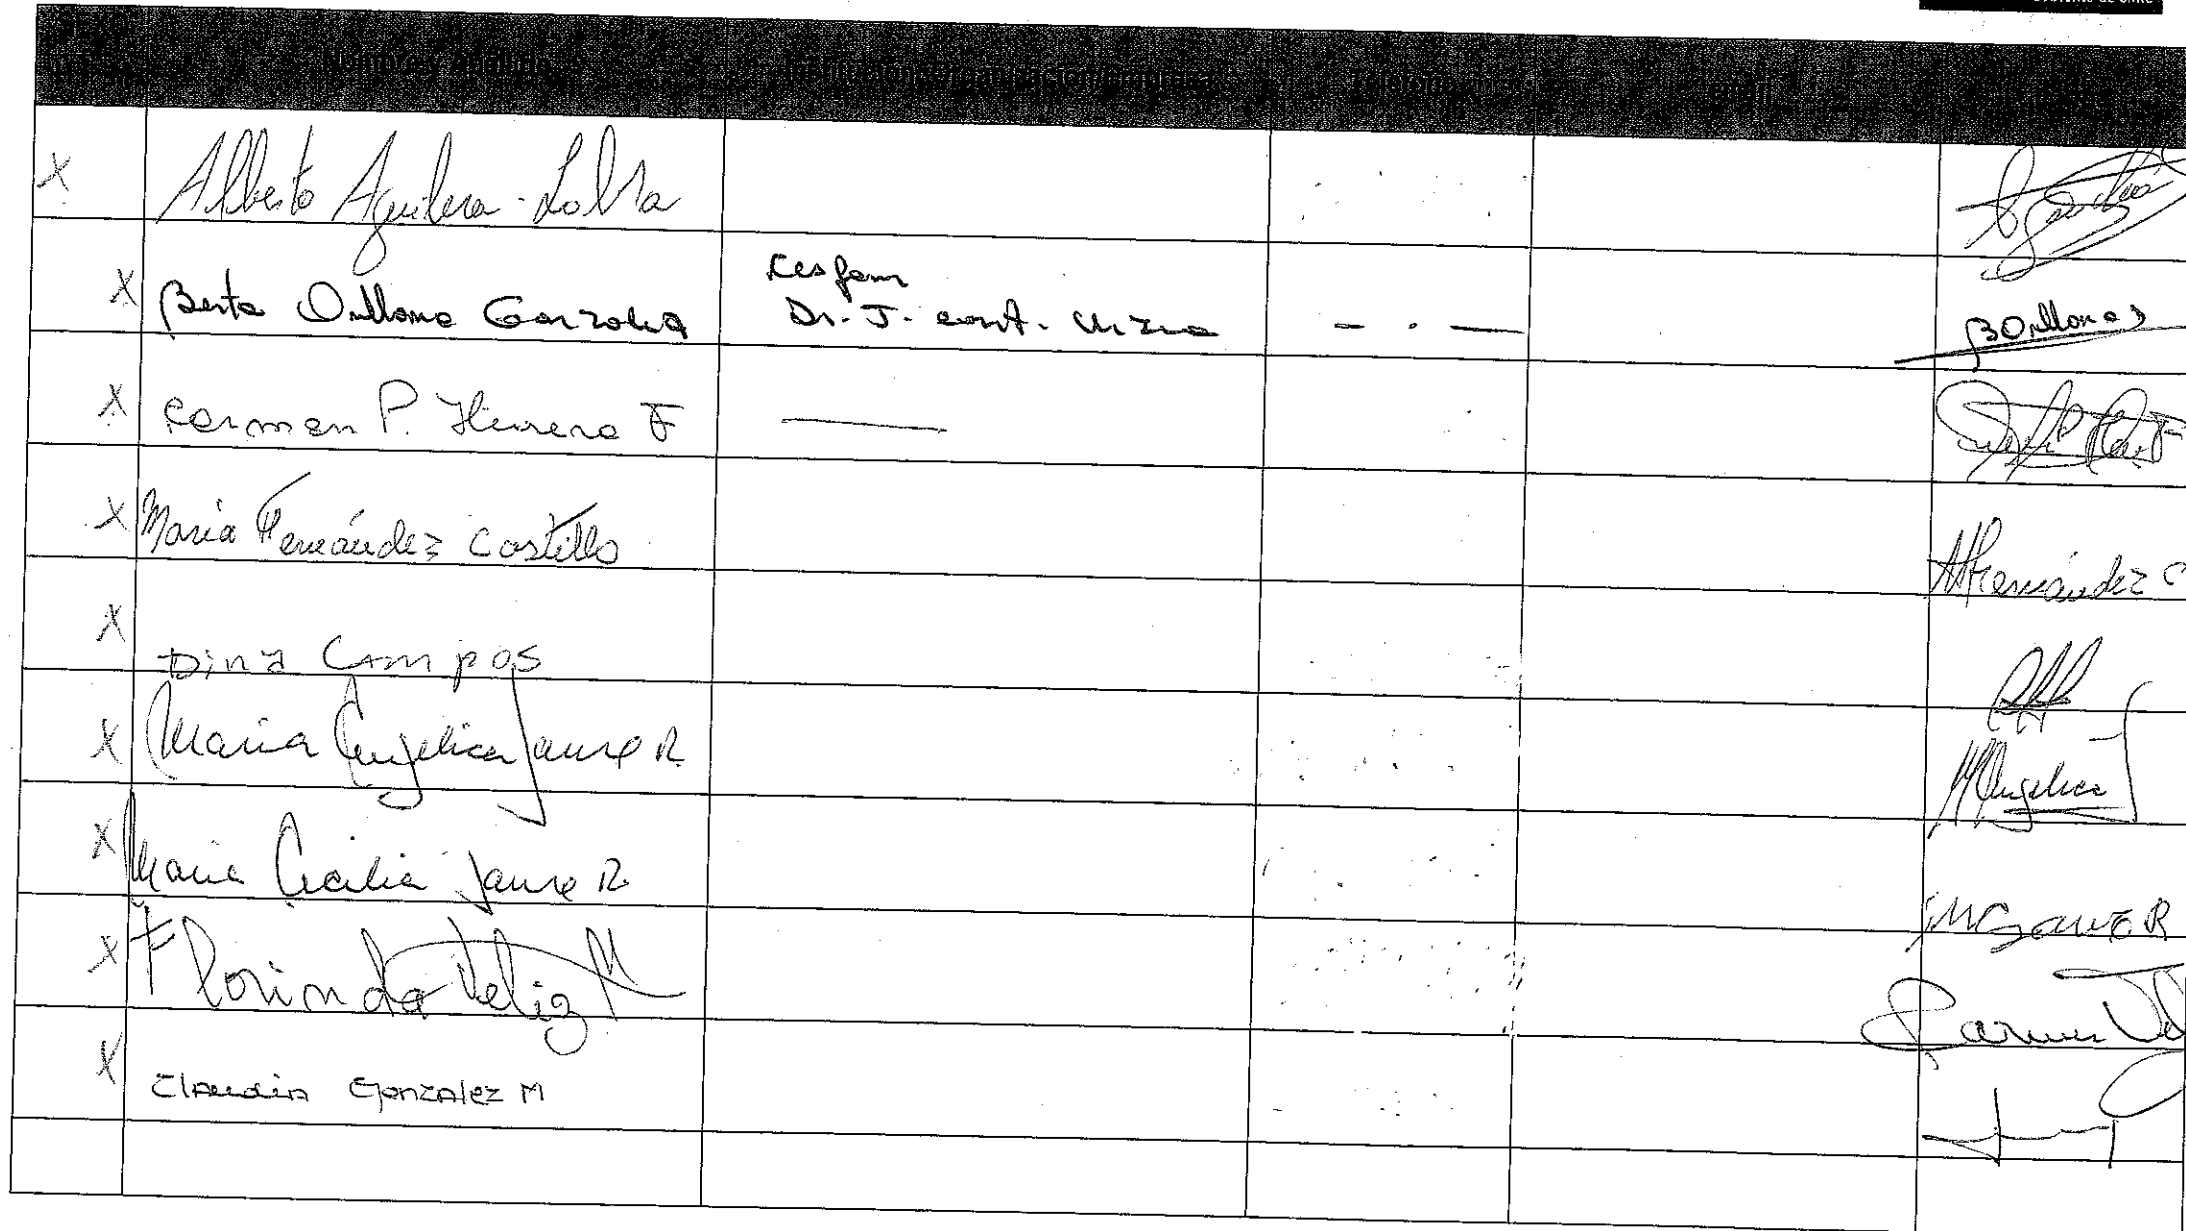 Nombre y Apellido Institución/Organización/Empresa Teléfono email
X Alberto Aguilera
X Berta Orellana Gonzalez Cesfam
Dr. J. - . - BOrellana
X Carmen P. Herrera F
X María Fernández Castillo MFernández C
X Dina Campos
X Maria Angelica Jaure R MAngelica J
X Maria Cecilia Jaure R
X Florinda Veliz M
X Claudia Gonzalez M